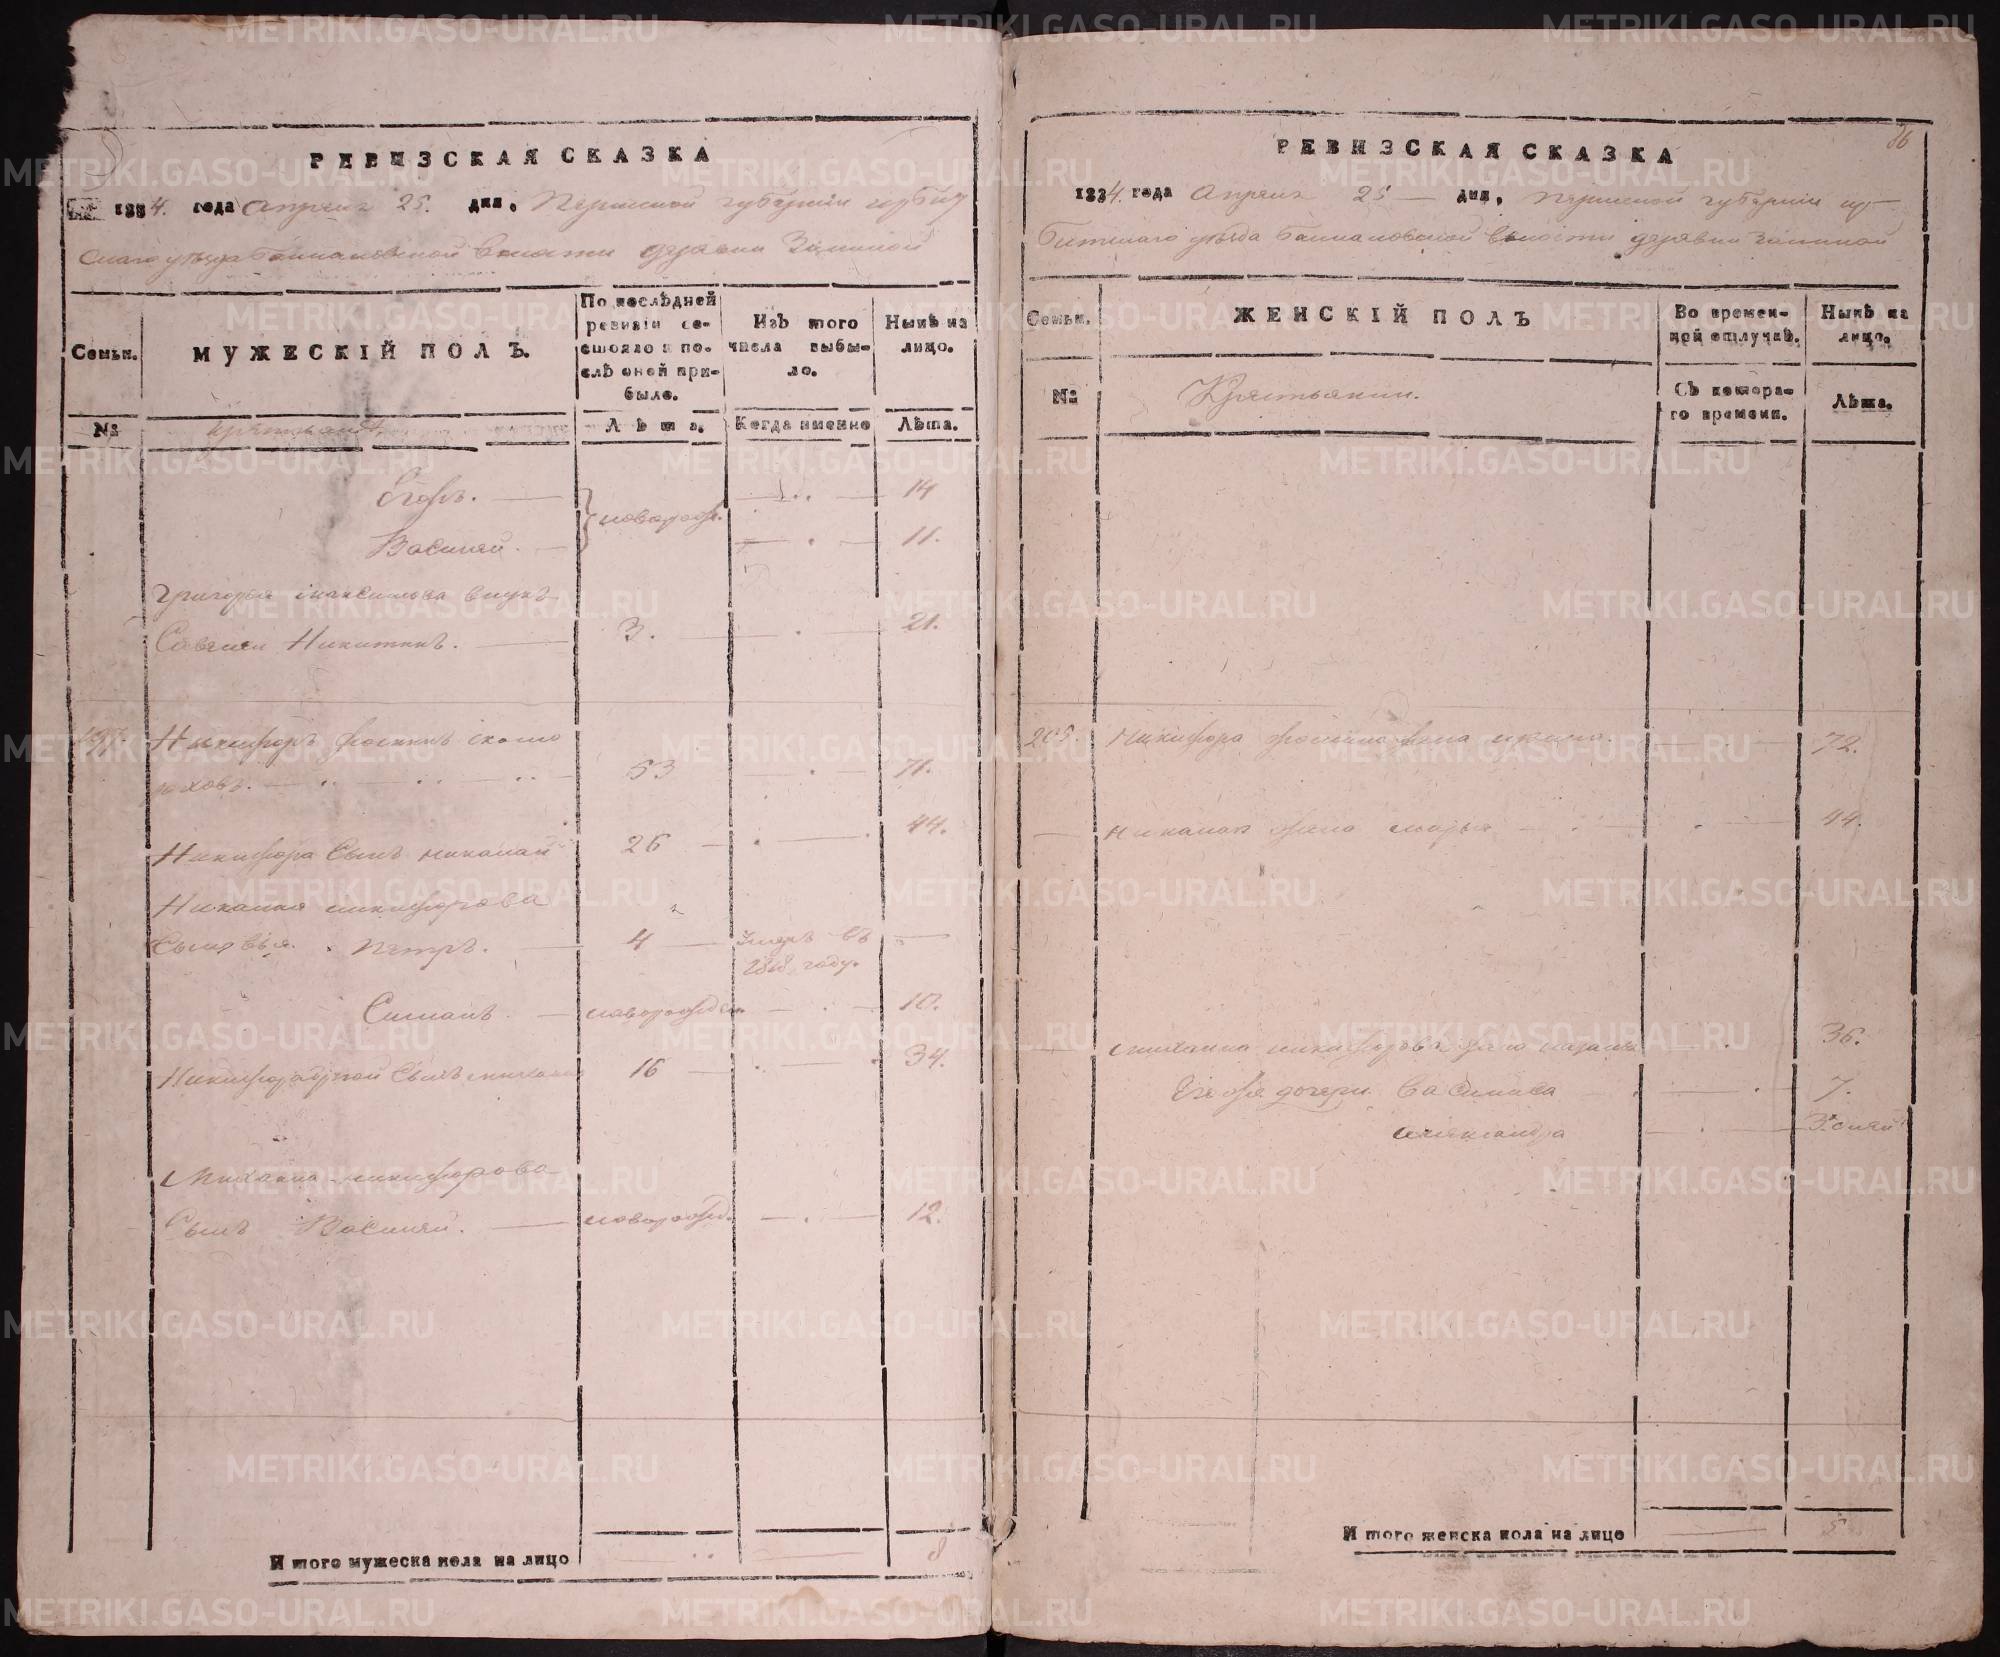 РЕВИЗСКАЯ СКАЗКА
1834. года Апреля 25. дня, Пермской губернии Ирбит
скаго уѣзда волости деревни
Семьи.
МУЖЕСКІЙ ПОЛЪ.
По послѣдней
ревизіи со-
стояло и по-
слѣ оной при-
было.
Изъ того
числа выбы-
ло.
Ныпѣ на
лицо.
№
крестьяне
Лѣта.
Когда именно
Лѣта.
Егоръ. 14
новорож.
Василей. 11.
Григорья Максимова внукъ
Савелей Никитинъ. 3. 21.
Никифоръ Фоминъ Скомо
роховъ. 53 71.
Никифора сынъ Николай 26 44.
Николая Никифорова
Сыновья. Петръ. 4 Умеръ въ
1818 году.
Симонъ. новорожден. 10.
Никифора другой сынъ Михайло 16 34.
Михаила Никифорова
Сынъ Василей. новорожд. 12.
Итого мужеска пола на лицо 8
РЕВИЗСКАЯ СКАЗКА
86
1834. года Апреля 25 дня, Пермской губернии Ир-
битскаго уѣзда волости деревни
Семьи.
ЖЕНСКІЙ ПОЛЪ
Во времен-
ной отлучкѣ.
Ныпѣ на
лицо.
№
Крестьянки.
Съ котора-
го времени.
Лѣта.
205 Никифора Фомина жена 72.
Николая жена Марья 44.
Михаила Никифорова жена 36.
Его же дочери Василиса 7.
Александра
Итого женска пола на лицо 5
METRIKI.GASO-URAL.RU